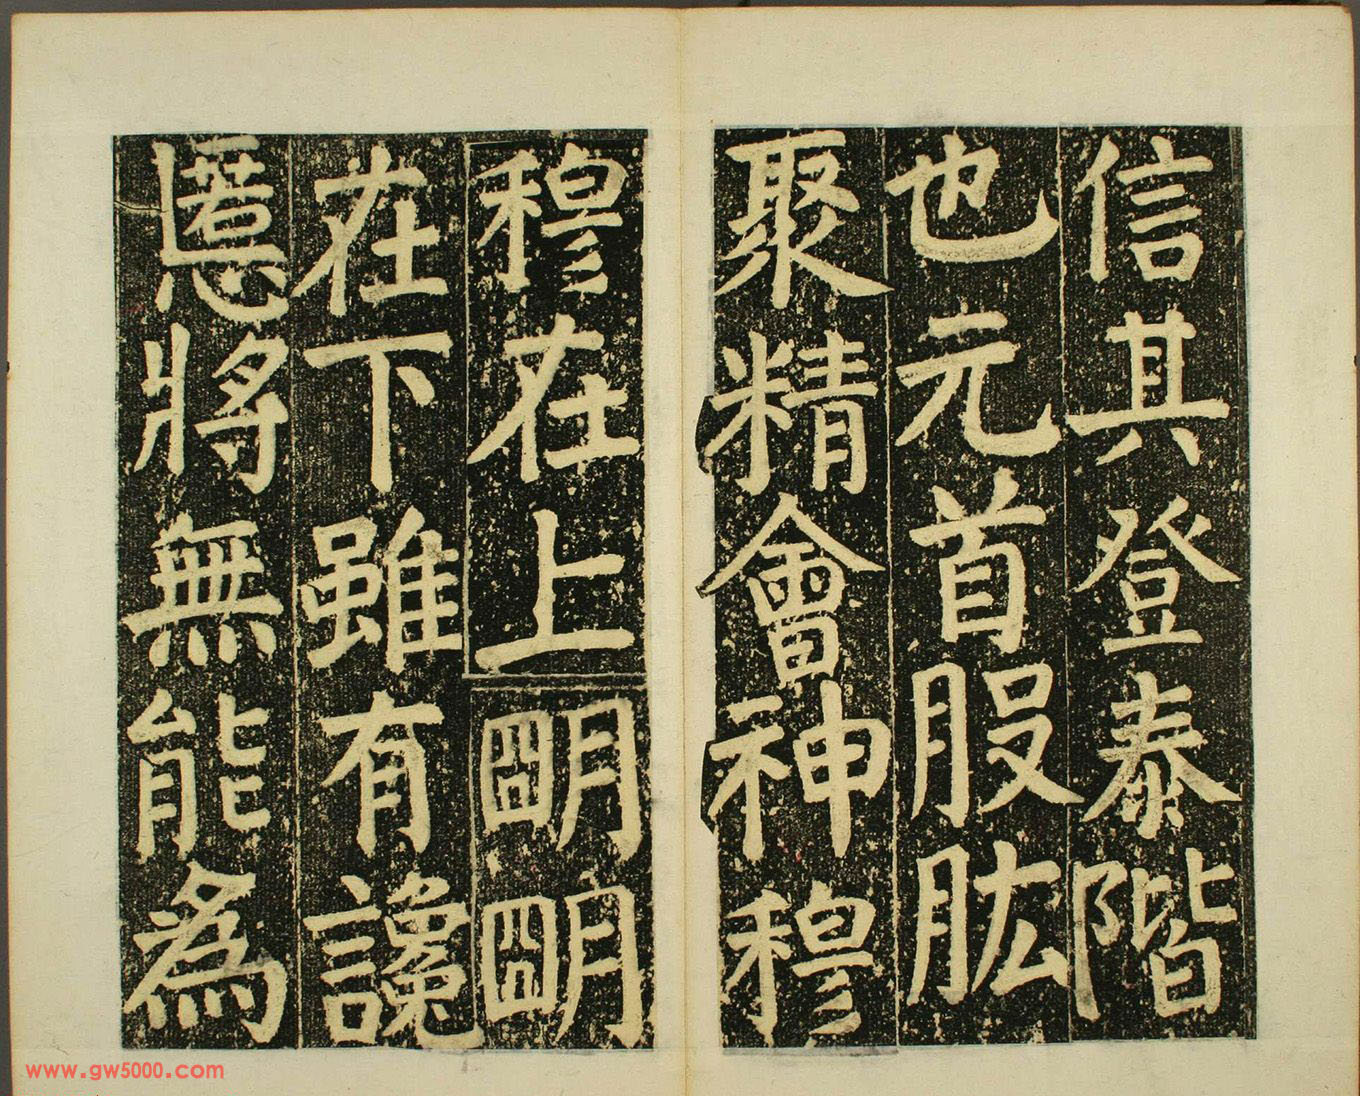 信其登泰階
也元首股肱
聚精會神穆
穆在上明明
在下雖有讒
慝將無能為
www.gw5000.com